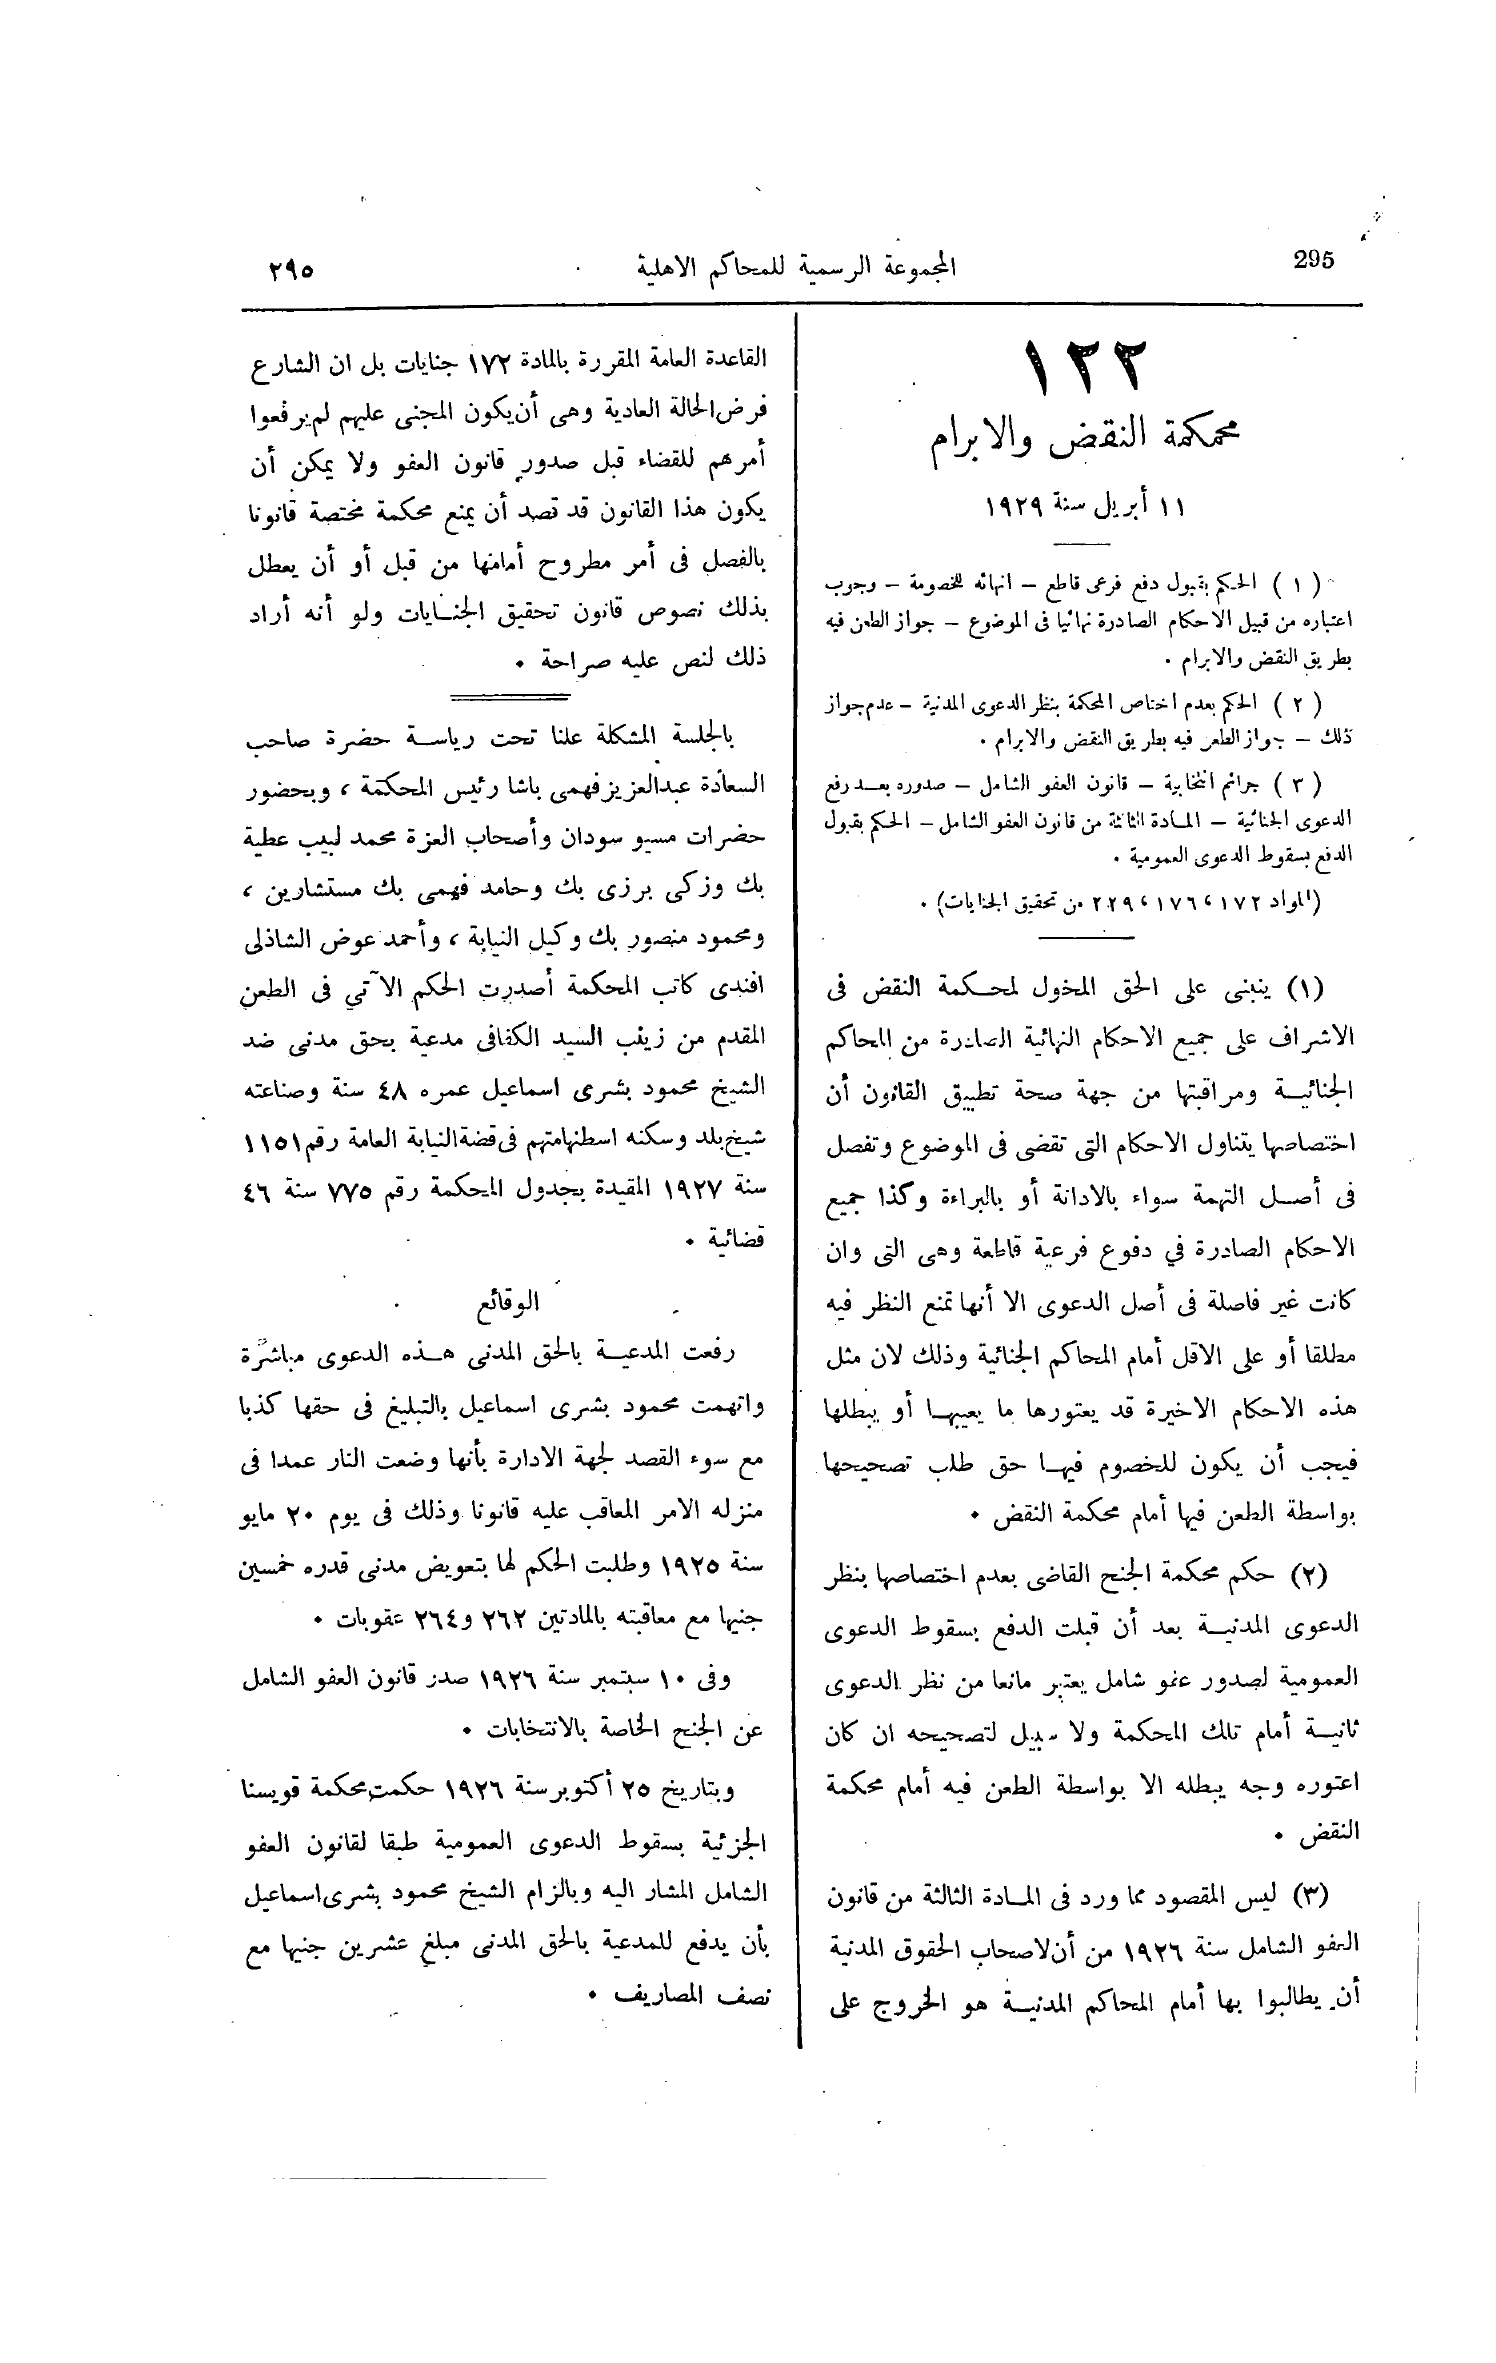 295
المجموعة الرسمية للمحاكم الاهلية
٢٩٥
١٢٢
محكمة النقض والابرام
١١ أبريل سنة ١٩٢٩
( ١ ) الحكم بقبول دفع فرعى قاطع – انهائه للخصومة – وجوب
اعتباره من قبيل الاحكام الصادرة نهائيا فى الموضوع – جواز الطعن فيه
بطريق النقض والابرام .
( ٢ ) الحكم بعدم اختاص المحكمة بنظر الدعوى المدنية – عدم جواز
ذلك – جواز الطعن فيه بطريق النقض والابرام .
( ٣ ) جرائم انتخابية – قانون العفو الشامل – صدوره بعد رفع
الدعوى الجنائية – المادة الثالثة من قانون العفو الشامل – الحكم بقبول
الدفع بسقوط الدعوى العمومية .
(المواد ١٧٢ ، ١٧٦ ، ٢٢٩ من تحقيق الجنايات) .
(١) ينبنى على الحق المخول لمحكمة النقض فى
الاشراف على جميع الاحكام النهائية الصادرة من المحاكم
الجنائية ومراقبتها من جهة صحة تطبيق القانون أن
اختصاصها يتناول الاحكام التى تقضى فى الموضوع وتفصل
فى أصل التهمة سواء بالادانة أو بالبراءة وكذا جميع
الاحكام الصادرة في دفوع فرعية قاطعة وهى التى وان
كانت غير فاصلة فى أصل الدعوى الا أنها تمنع النظر فيه
مطلقا أو على الاقل أمام المحاكم الجنائية وذلك لان مثل
هذه الاحكام الاخيرة قد يعتورها ما يعيبها أو يبطلها
فيجب أن يكون للخصوم فيها حق طلب تصحيحها
بواسطة الطعن فيها أمام محكمة النقض .
(٢) حكم محكمة الجنح القاضى بعدم اختصاصها بنظر
الدعوى المدنية بعد أن قبلت الدفع بسقوط الدعوى
العمومية لصدور عفو شامل يعتبر مانعا من نظر الدعوى
ثانية أمام تلك المحكمة ولا سبيل لتصحيحه ان كان
اعتوره وجه يبطله الا بواسطة الطعن فيه أمام محكمة
النقض .
(٣) ليس المقصود مما ورد فى المادة الثالثة من قانون
العفو الشامل سنة ١٩٢٦ من أن لاصحاب الحقوق المدنية
أن يطالبوا بها أمام المحاكم المدنية هو الخروج على
القاعدة العامة المقررة بالمادة ١٧٢ جنايات بل ان الشارع
فرض الحالة العادية وهى أن يكون المجنى عليهم لم يرفعوا
أمرهم للقضاء قبل صدور قانون العفو ولا يمكن أن
يكون هذا القانون قد قصد أن يمنع محكمة مختصة قانونا
بالفصل فى أمر مطروح أمامها من قبل أو أن يعطل
بذلك نصوص قانون تحقيق الجنايات ولو أنه أراد
ذلك لنص عليه صراحة .
بالجلسة المشكلة علنا تحت رياسة حضرة صاحب
السعادة عبدالعزيز فهمى باشا رئيس المحكمة ، وبحضور
حضرات مسيو سودان وأصحاب العزة محمد لبيب عطية
بك وزكى برزى بك وحامد فهمى بك مستشارين ،
ومحمود منصور بك وكيل النيابة ، وأحمد عوض الشاذلى
افندى كاتب المحكمة أصدرت الحكم الآتي فى الطعن
المقدم من زينب السيد الكفافى مدعية بحق مدنى ضد
الشيخ محمود بشرى اسماعيل عمره ٤٨ سنة وصناعته
شيخ بلد وسكنه اسطنها متهم فى قضة النيابة العامة رقم ١١٥١
سنة ١٩٢٧ المقيدة بجدول المحكمة رقم ٧٧٥ سنة ٤٦
قضائية .
الوقائع
رفعت المدعية بالحق المدنى هذه الدعوى مباشرة
واتهمت محمود بشرى اسماعيل بالتبليغ فى حقها كذبا
مع سوء القصد لجهة الادارة بأنها وضعت النار عمدا فى
منزله الامر المعاقب عليه قانونا وذلك فى يوم ٢٠ مايو
سنة ١٩٢٥ وطلبت الحكم لها بتعويض مدنى قدره خمسين
جنيها مع معاقبته بالمادتين ٢٦٢ و٢٦٤ عقوبات .
وفى ١٠ سبتمبر سنة ١٩٢٦ صدر قانون العفو الشامل
عن الجنح الخاصة بالانتخابات .
وبتاريخ ٢٥ أكتوبر سنة ١٩٢٦ حكمت محكمة قويسنا
الجزئية بسقوط الدعوى العمومية طبقا لقانون العفو
الشامل المشار اليه وبالزام الشيخ محمود بشرى اسماعيل
بأن يدفع للمدعية بالحق المدنى مبلغ عشرين جنيها مع
نصف المصاريف .